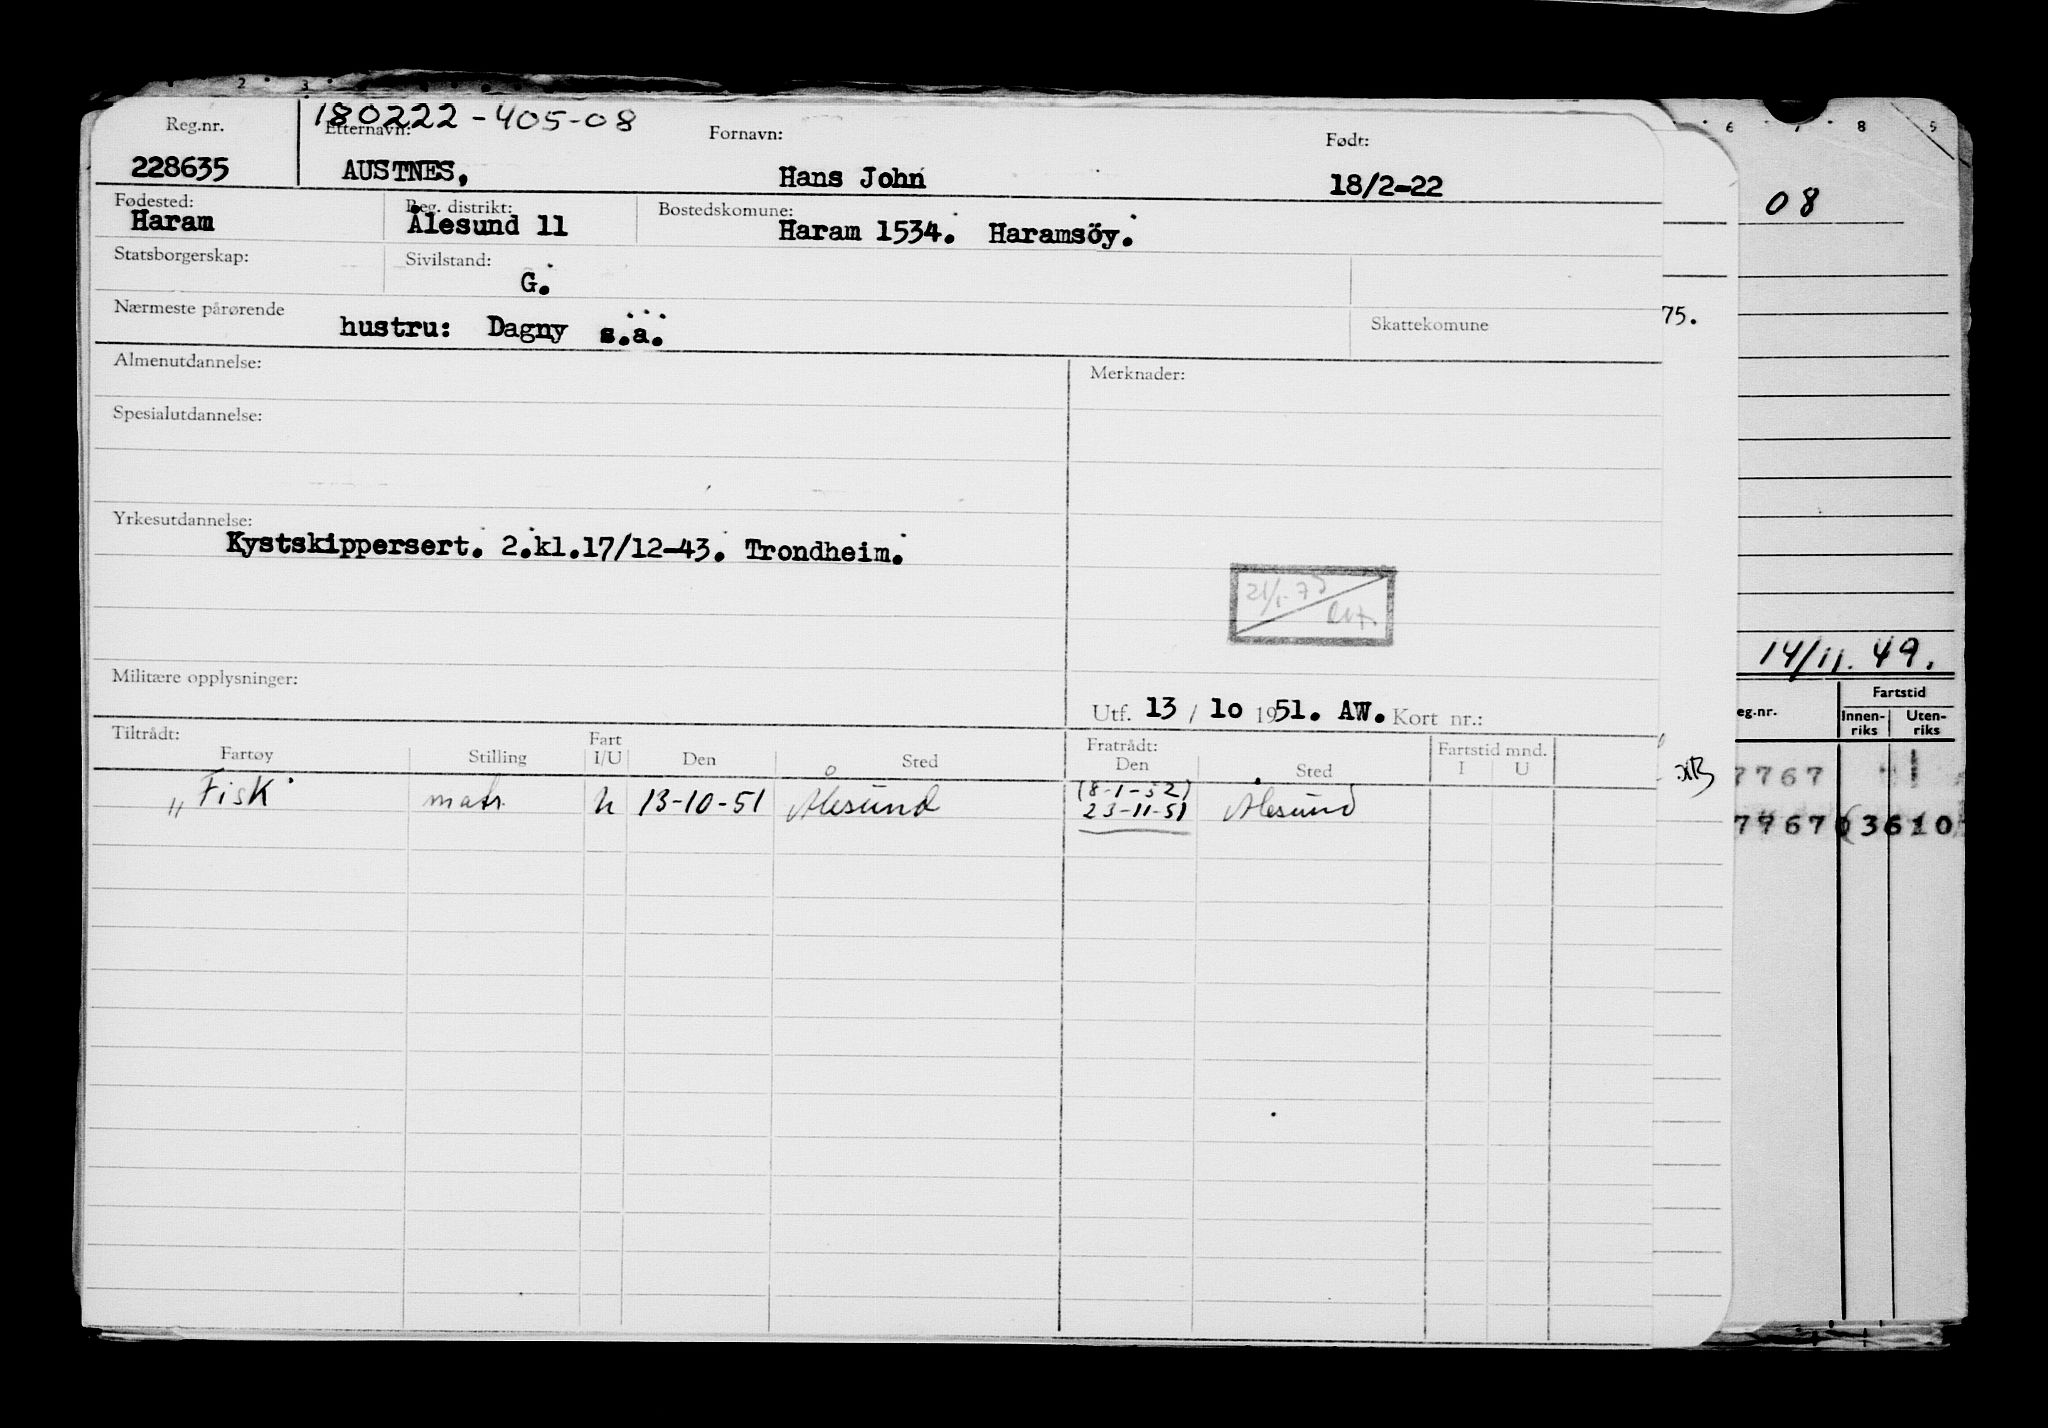 2 3
6 7 8 9
180222-405-08
Reg.nr. Etternavn: Fornavn: Født:
228635 AUSTNES, Hans John 18/2-22
08
Fødested: Reg. distrikt: Bostedskomune:
Haram Ålesund 11 Haram 1534. Haramsöy.
Statsborgerskap: Sivilstand:
G.
Nærmeste pårørende Skattekomune 75.
hustru: Dagny s.a.
Almenutdannelse: Merknader:
Spesialutdannelse:
Yrkesutdannelse:
Kystskippersert. 2.kl.17/12-43. Trondheim.
21/1-75
14/11.49.
Militære opplysninger:
Utf. 13 / 10 1951. AW. Kort nr.:
eg.nr. Fartstid
Innen-riks Uten-riks
Tiltrådt: Fratrådt: Fartstid mnd.
Fartøy Stilling Fart I/U Den Sted Den Sted I U
7767 1
(8-1-52)
"Fisk" matr. U 13-10-51 Ålesund 23-11-51 Ålesund
7767 03610